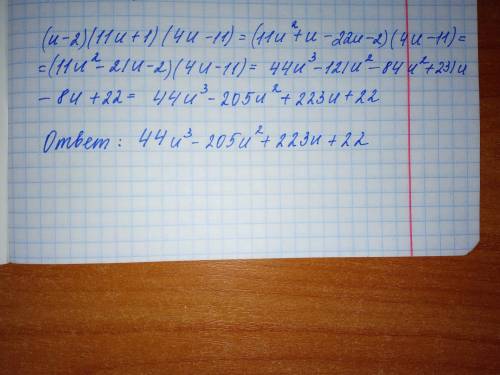 (u-2)(11u+1)(4u-11)=(11u²+u-22u-2)(4u-11)=
=(11u²-21u-2)(4u-11)= 44u³-121u²-84u²+231u
-8u+22= 44u³-205u²+223u+22
Ответ: 44u³-205u²+223u+22